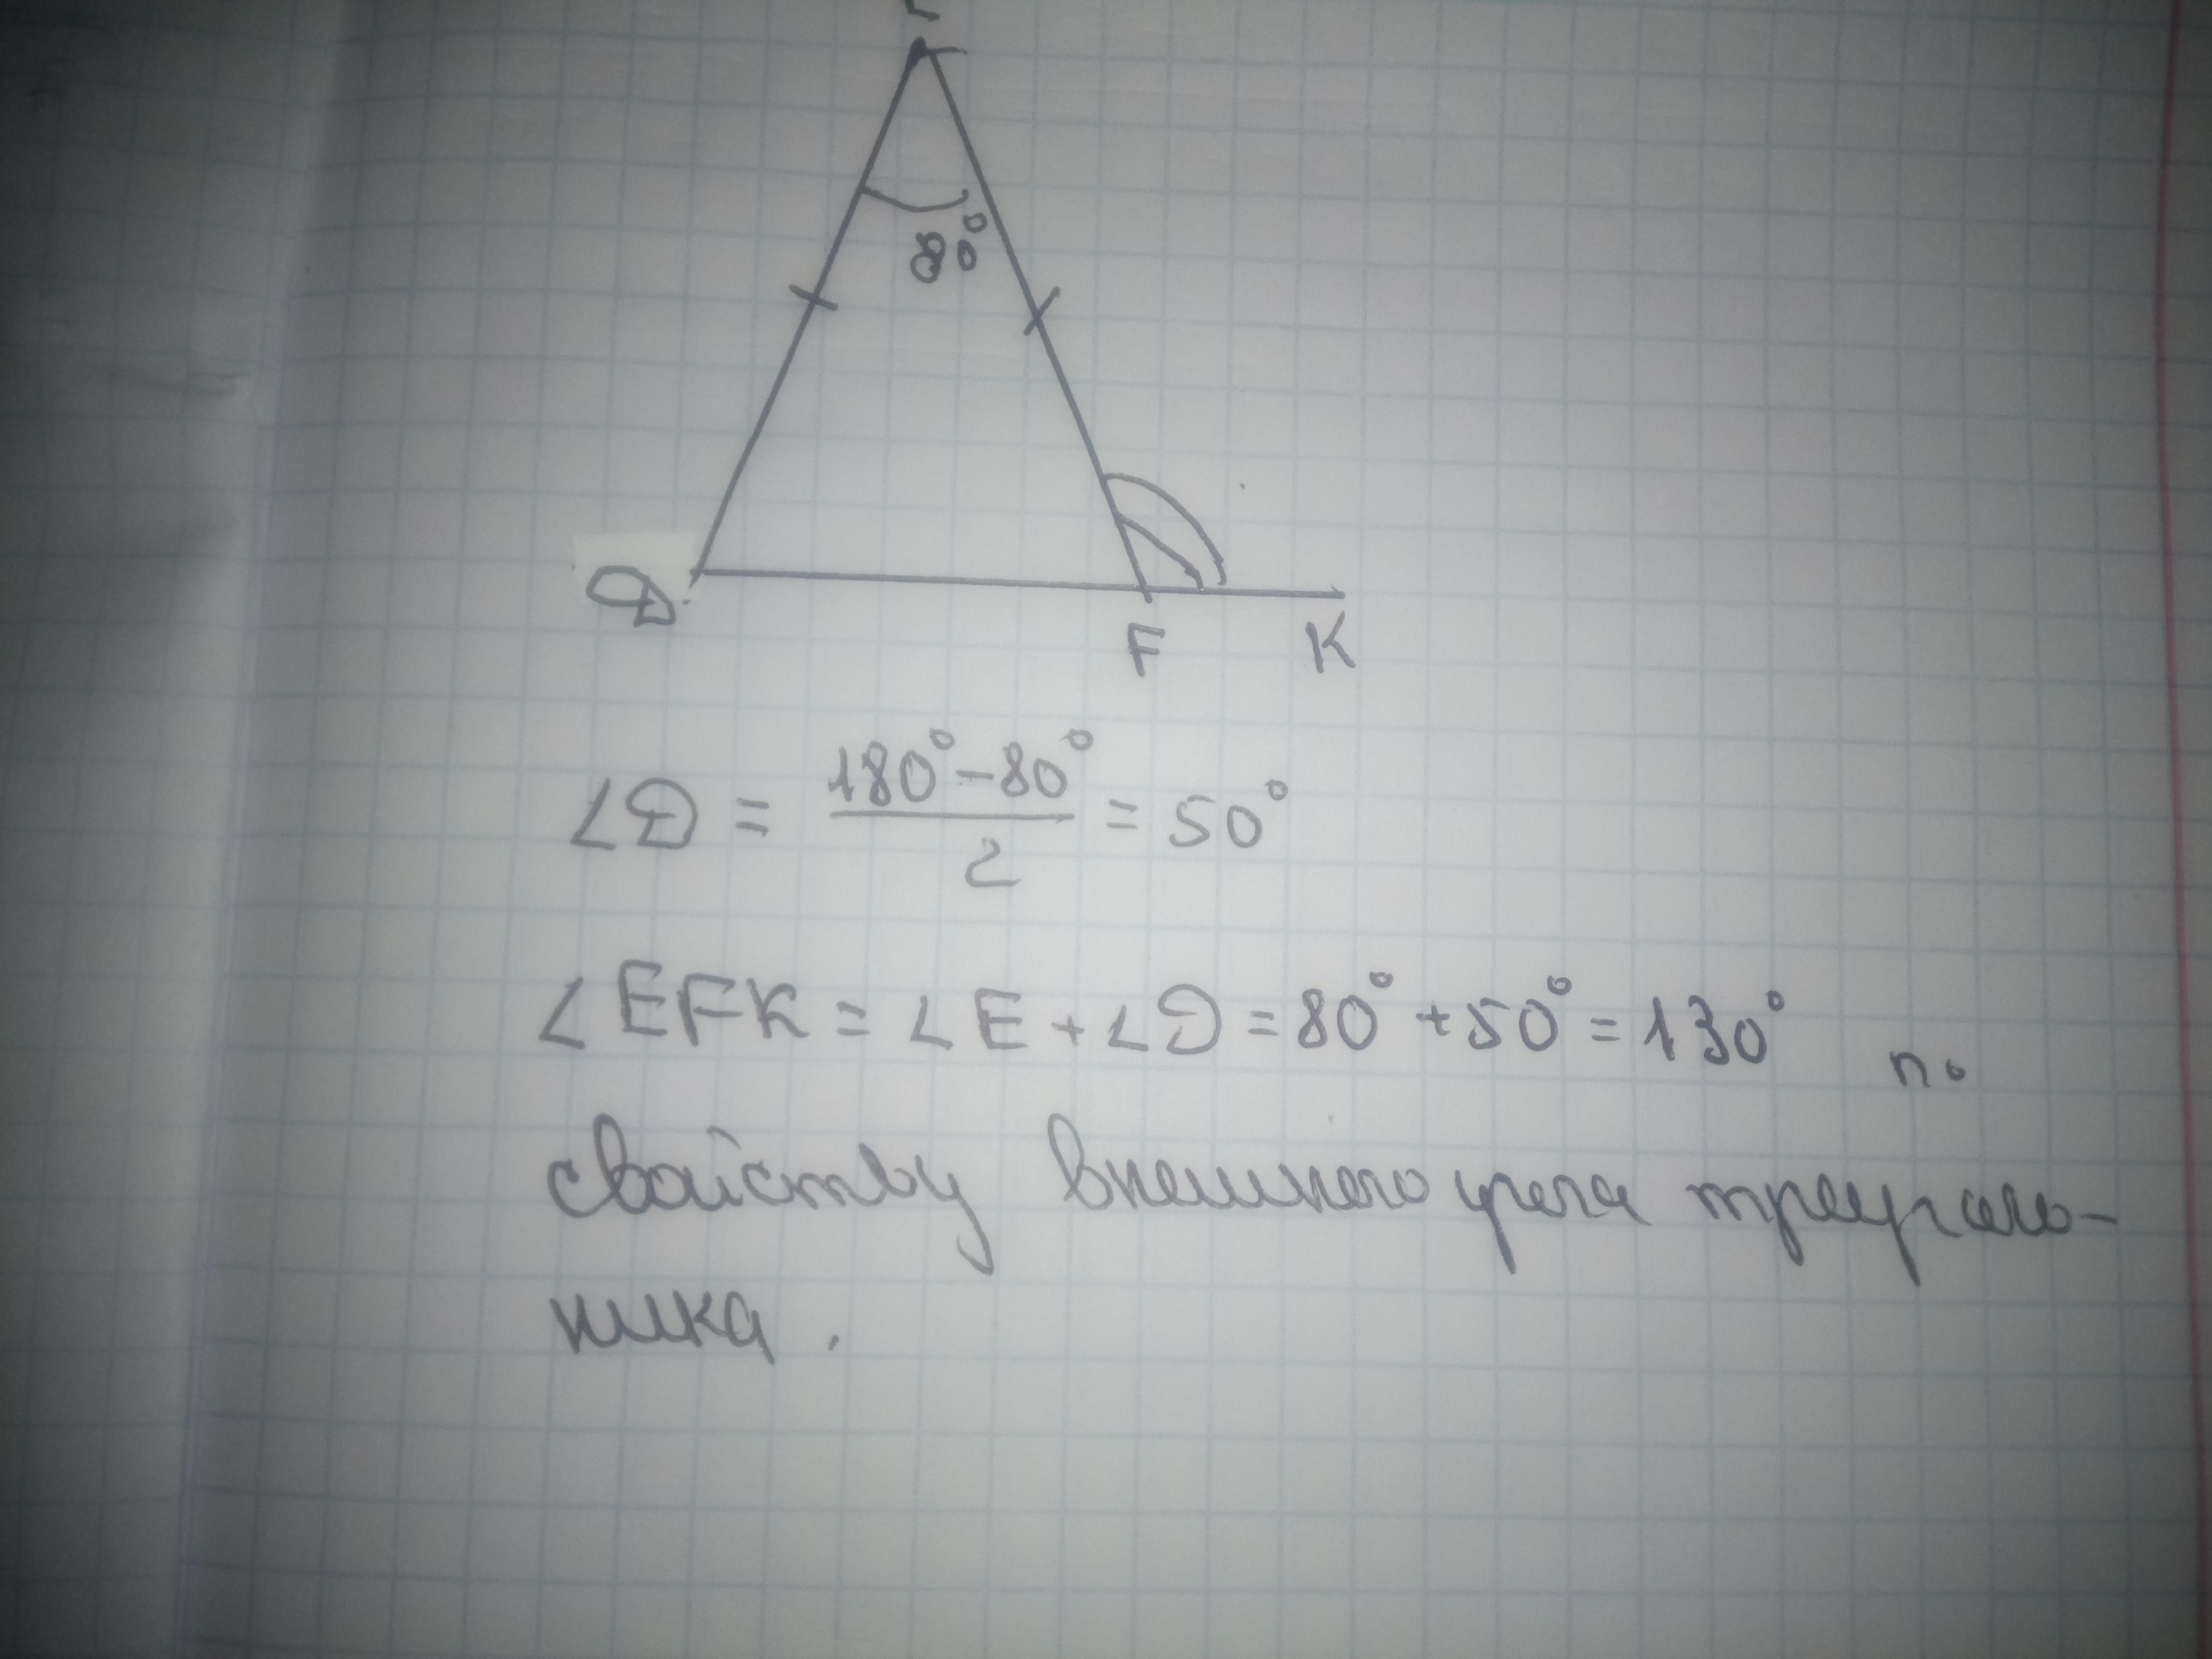 80°
D
F K
∠D = (180° - 80°)/2 = 50°
∠EFK = ∠E + ∠D = 80° + 50° = 130° по
свойству внешнего угла треуголь-
ника.